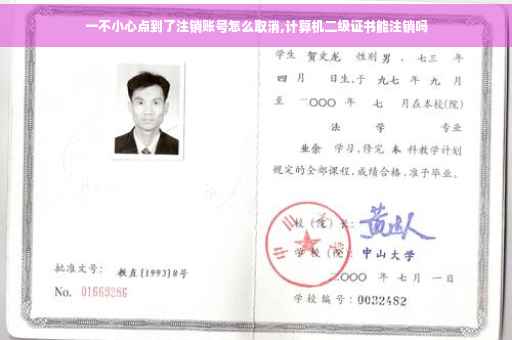 一不小心点到了注销账号怎么取消,计算机二级证书能注销吗
学生 贺文龙 性别 男 、七三 年
四 月 日生,于 九七 年 九 月
至 二〇〇〇 年 七 月在本校(院)
法 学 专业
业余 学习,修完 本 科教学计划
规定的全部课程,成绩合格,准予毕业。
校(院)长:
学校(院): 中山大学
二〇〇〇 年 七 月 一 日
学校编号:0032482
批准文号: 教直[1993]8号
No. 01663286